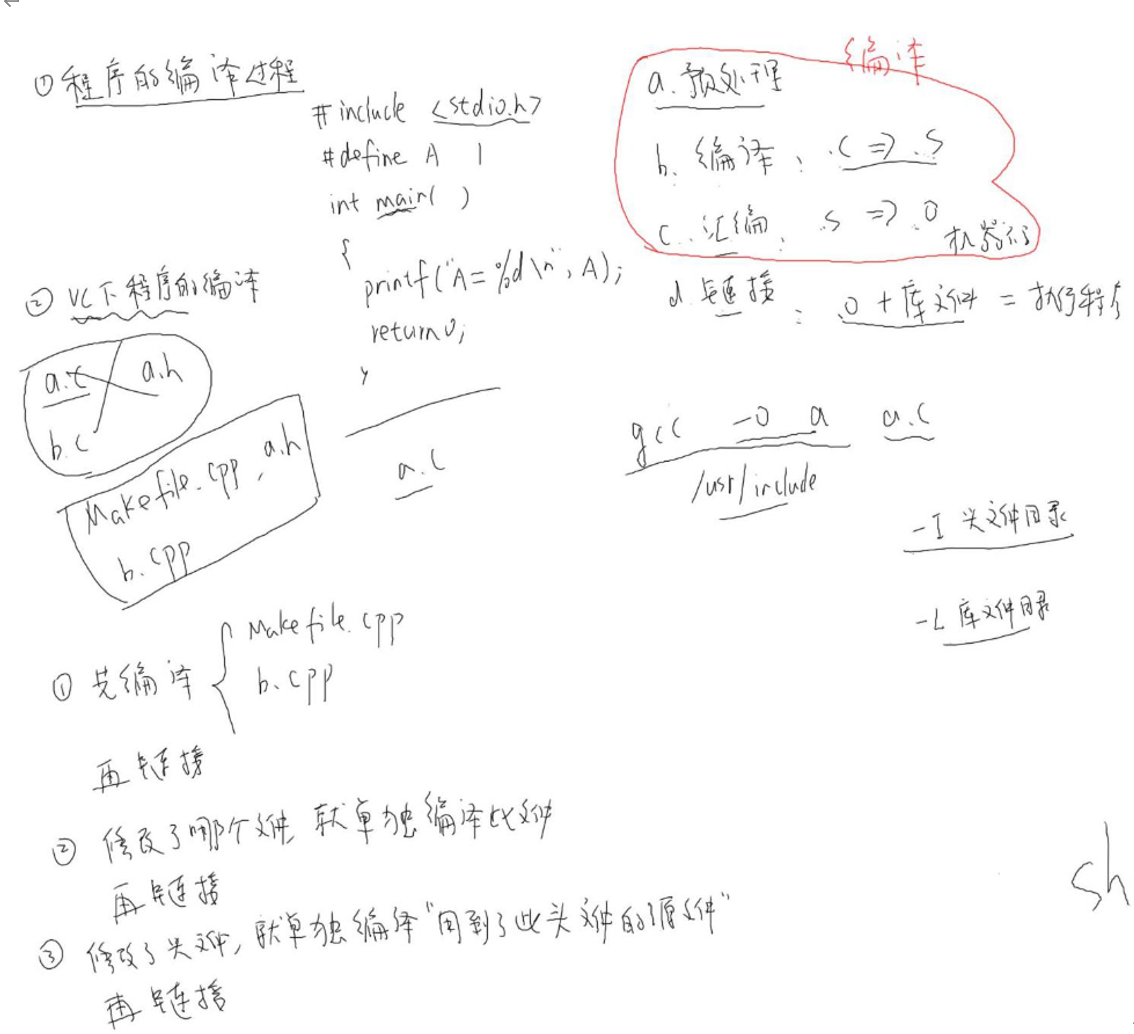 ① 程序的编译过程
#include <stdio.h>
#define A 1
int main( )
{
printf("A=%d\n", A);
return 0;
}
a.c
编译
a. 预处理
b. 编译: .c => .s
c. 汇编: .s => .o 机器码
d. 链接: .o + 库文件 = 执行程序
gcc -o a a.c
/usr/include
-I 头文件目录
-L 库文件目录
② VC下程序的编译
a.c a.h
b.c
Makefile.cpp, a.h
b.cpp
① 先编译
Makefile.cpp
b.cpp
再链接
② 修改了哪个文件, 就单独编译此文件
再链接
③ 修改了头文件, 就单独编译"用到了此头文件的源文件"
再链接
sh